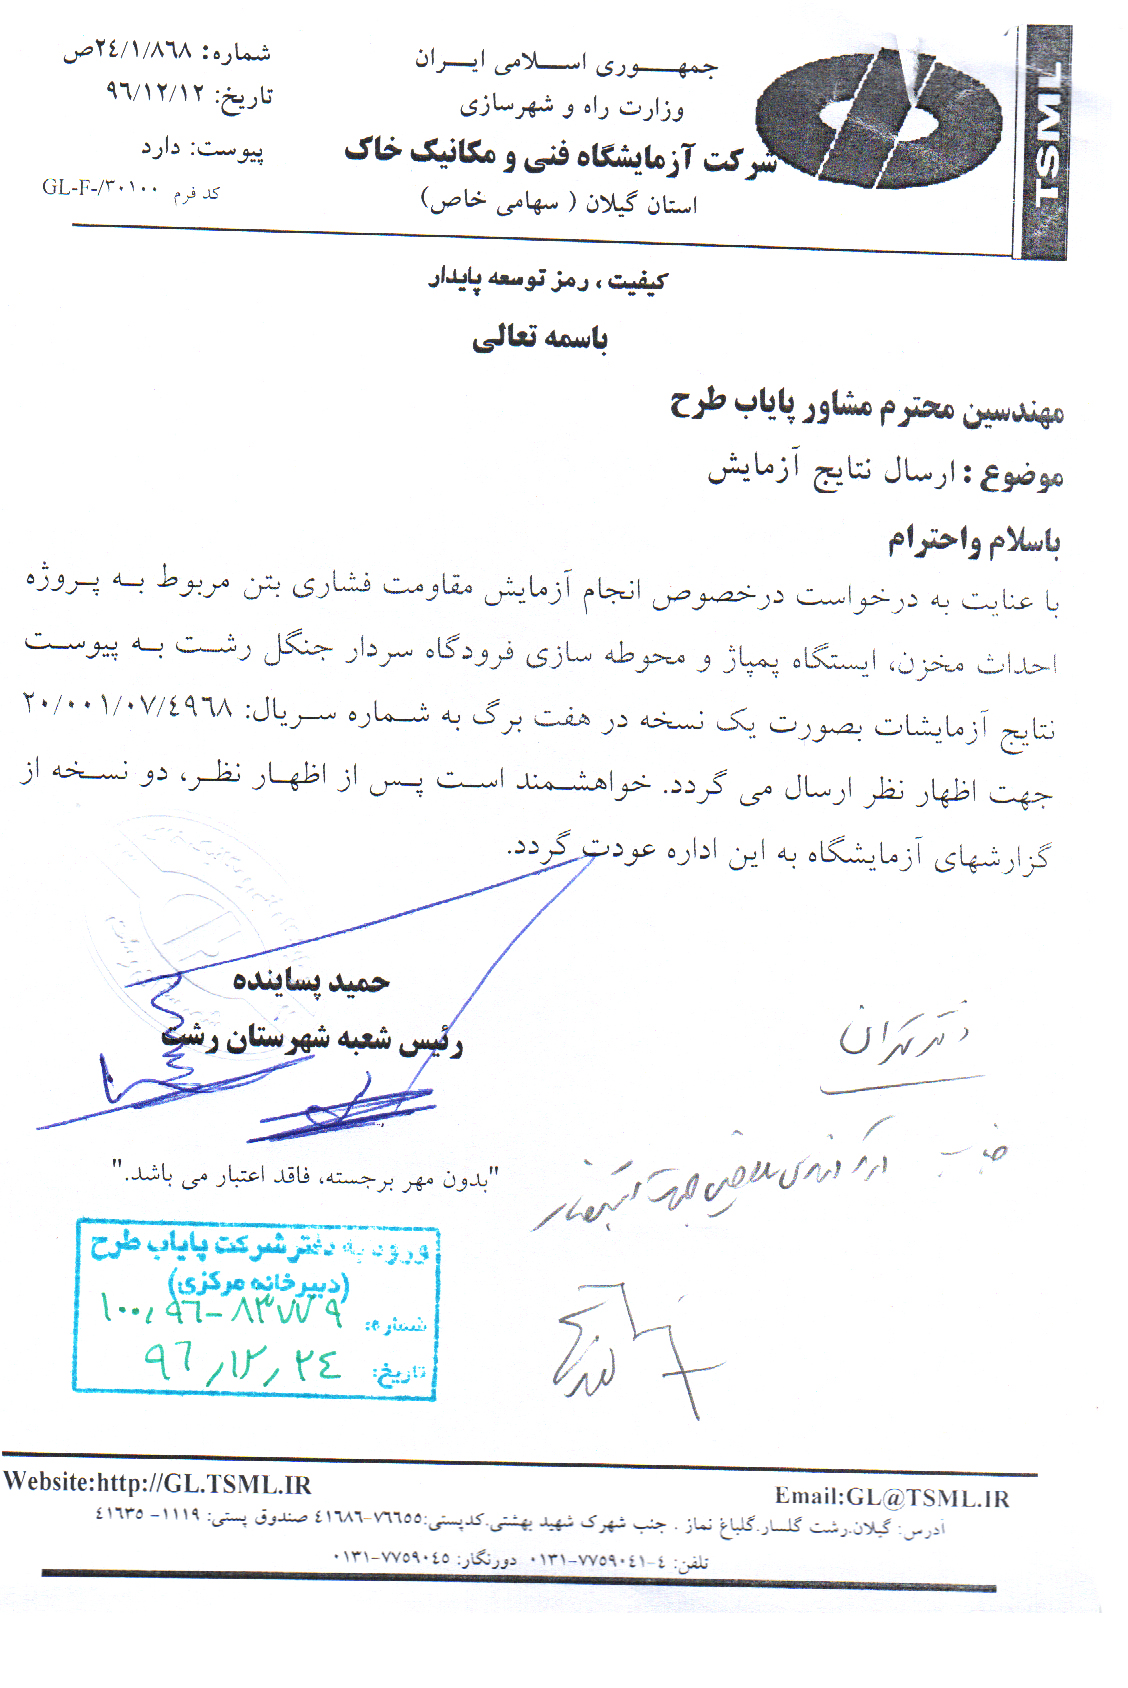 جمهوری اسلامی ایران
وزارت راه و شهرسازی
شرکت آزمایشگاه فنی و مکانیک خاک
استان گیلان ( سهامی خاص)
TSML
شماره: ۲٤/۱/۸٦۸ص
تاریخ: ۹٦/۱۲/۱۲
پیوست: دارد
کد فرم GL-F-/۳۰۱۰۰
کیفیت ، رمز توسعه پایدار
باسمه تعالی
مهندسین محترم مشاور پایاب طرح
موضوع : ارسال نتایج آزمایش
باسلام واحترام
با عنایت به درخواست درخصوص انجام آزمایش مقاومت فشاری بتن مربوط به پروژه
احداث مخزن، ایستگاه پمپاژ و محوطه سازی فرودگاه سردار جنگل رشت به پیوست
نتایج آزمایشات بصورت یک نسخه در هفت برگ به شماره سریال: ۲۰/۰۰۱/۰۷/٤۹٦۸
جهت اظهار نظر ارسال می گردد. خواهشمند است پس از اظهار نظر، دو نسخه از
گزارشهای آزمایشگاه به این اداره عودت گردد.
حمید پساینده
رئیس شعبه شهرستان رشت
دفتر تهران
جناب
جهت
"بدون مهر برجسته، فاقد اعتبار می باشد."
ورود به دفتر شرکت پایاب طرح
(دبیرخانه مرکزی)
شماره: ۱۰۰٫۹٦-۸۳۷۷۹
تاریخ: ۹٦٫۱۲٫۲٤
Website:http://GL.TSML.IR
Email:GL@TSML.IR
آدرس: گیلان.رشت گلسار.گلباغ نماز . جنب شهرک شهید بهشتی.کدپستی:۷٦٦٥٥-٤۱٦۸٦ صندوق پستی: ۱۱۱۹- ٤۱٦۳٥
تلفن: ٤-۷۷٥۹۰٤۱-۰۱۳۱ دورنگار: ۷۷٥۹۰٤٥-۰۱۳۱